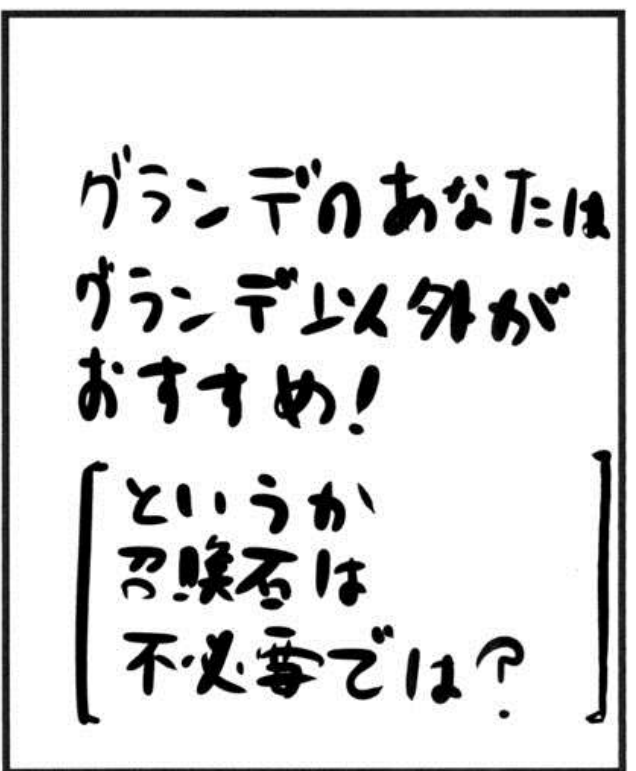 グランデのあなたは
グランデ以外が
おすすめ!
というか
召喚石は
不必要では?